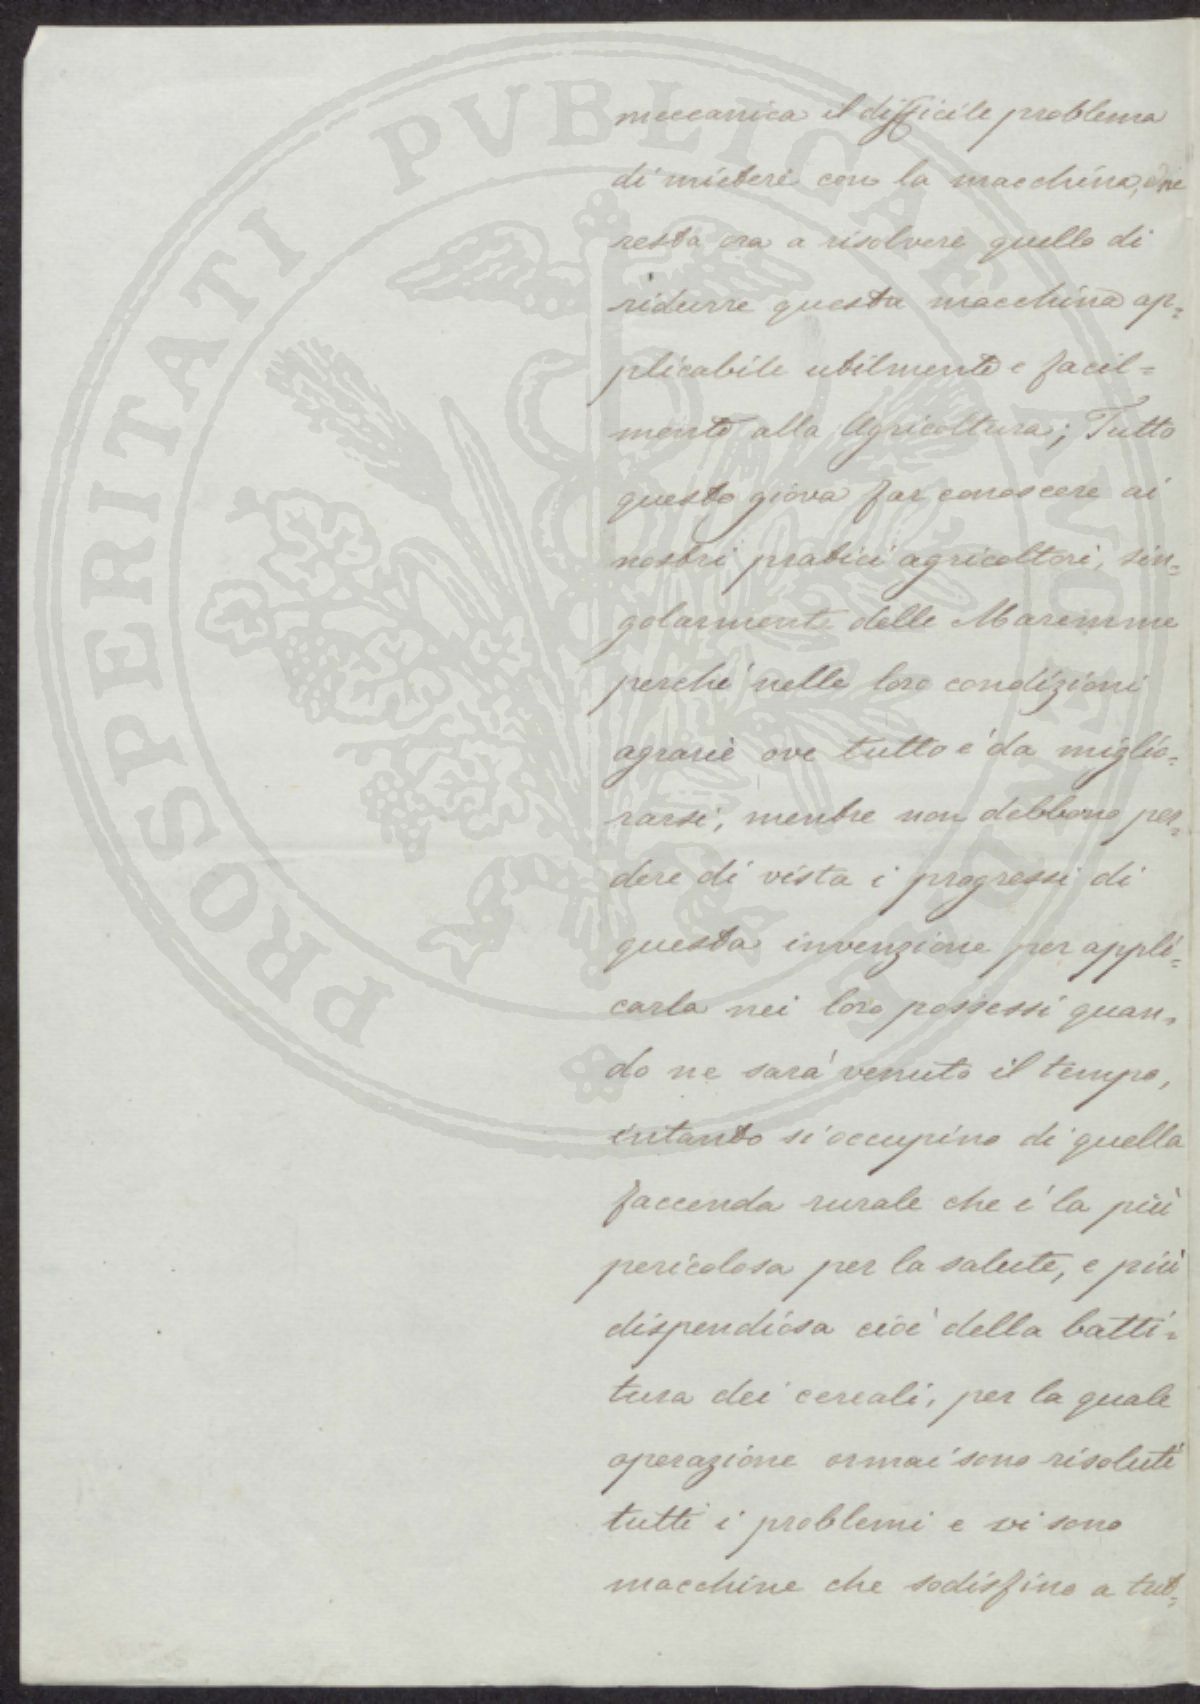 PROSPERITATI PVBLICAE AVGENDAE
meccanica il difficile problema
di mietere con la macchina, che
resta ora a risolvere quello di
ridurre questa macchina ap=
plicabile utilmente e facil=
mente alla Agricoltura; Tutto
questo giova far conoscere ai
nostri pratici agricoltori, sin=
golarmente delle Maremme
perché nelle loro condizioni
agrarie ove tutto é da miglio=
rarsi, mentre non debbono per=
dere di vista i progressi di
questa invenzione per appli=
carla nei loro possessi quan=
do ne sará venuto il tempo,
intanto si occupino di quella
faccenda rurale che é la più
pericolosa per la salute, e più
dispendiosa cioé della batti=
tura dei cereali, per la quale
operazione ormai sono risoluti
tutti i problemi e vi sono
macchine che sodisfino a tut=